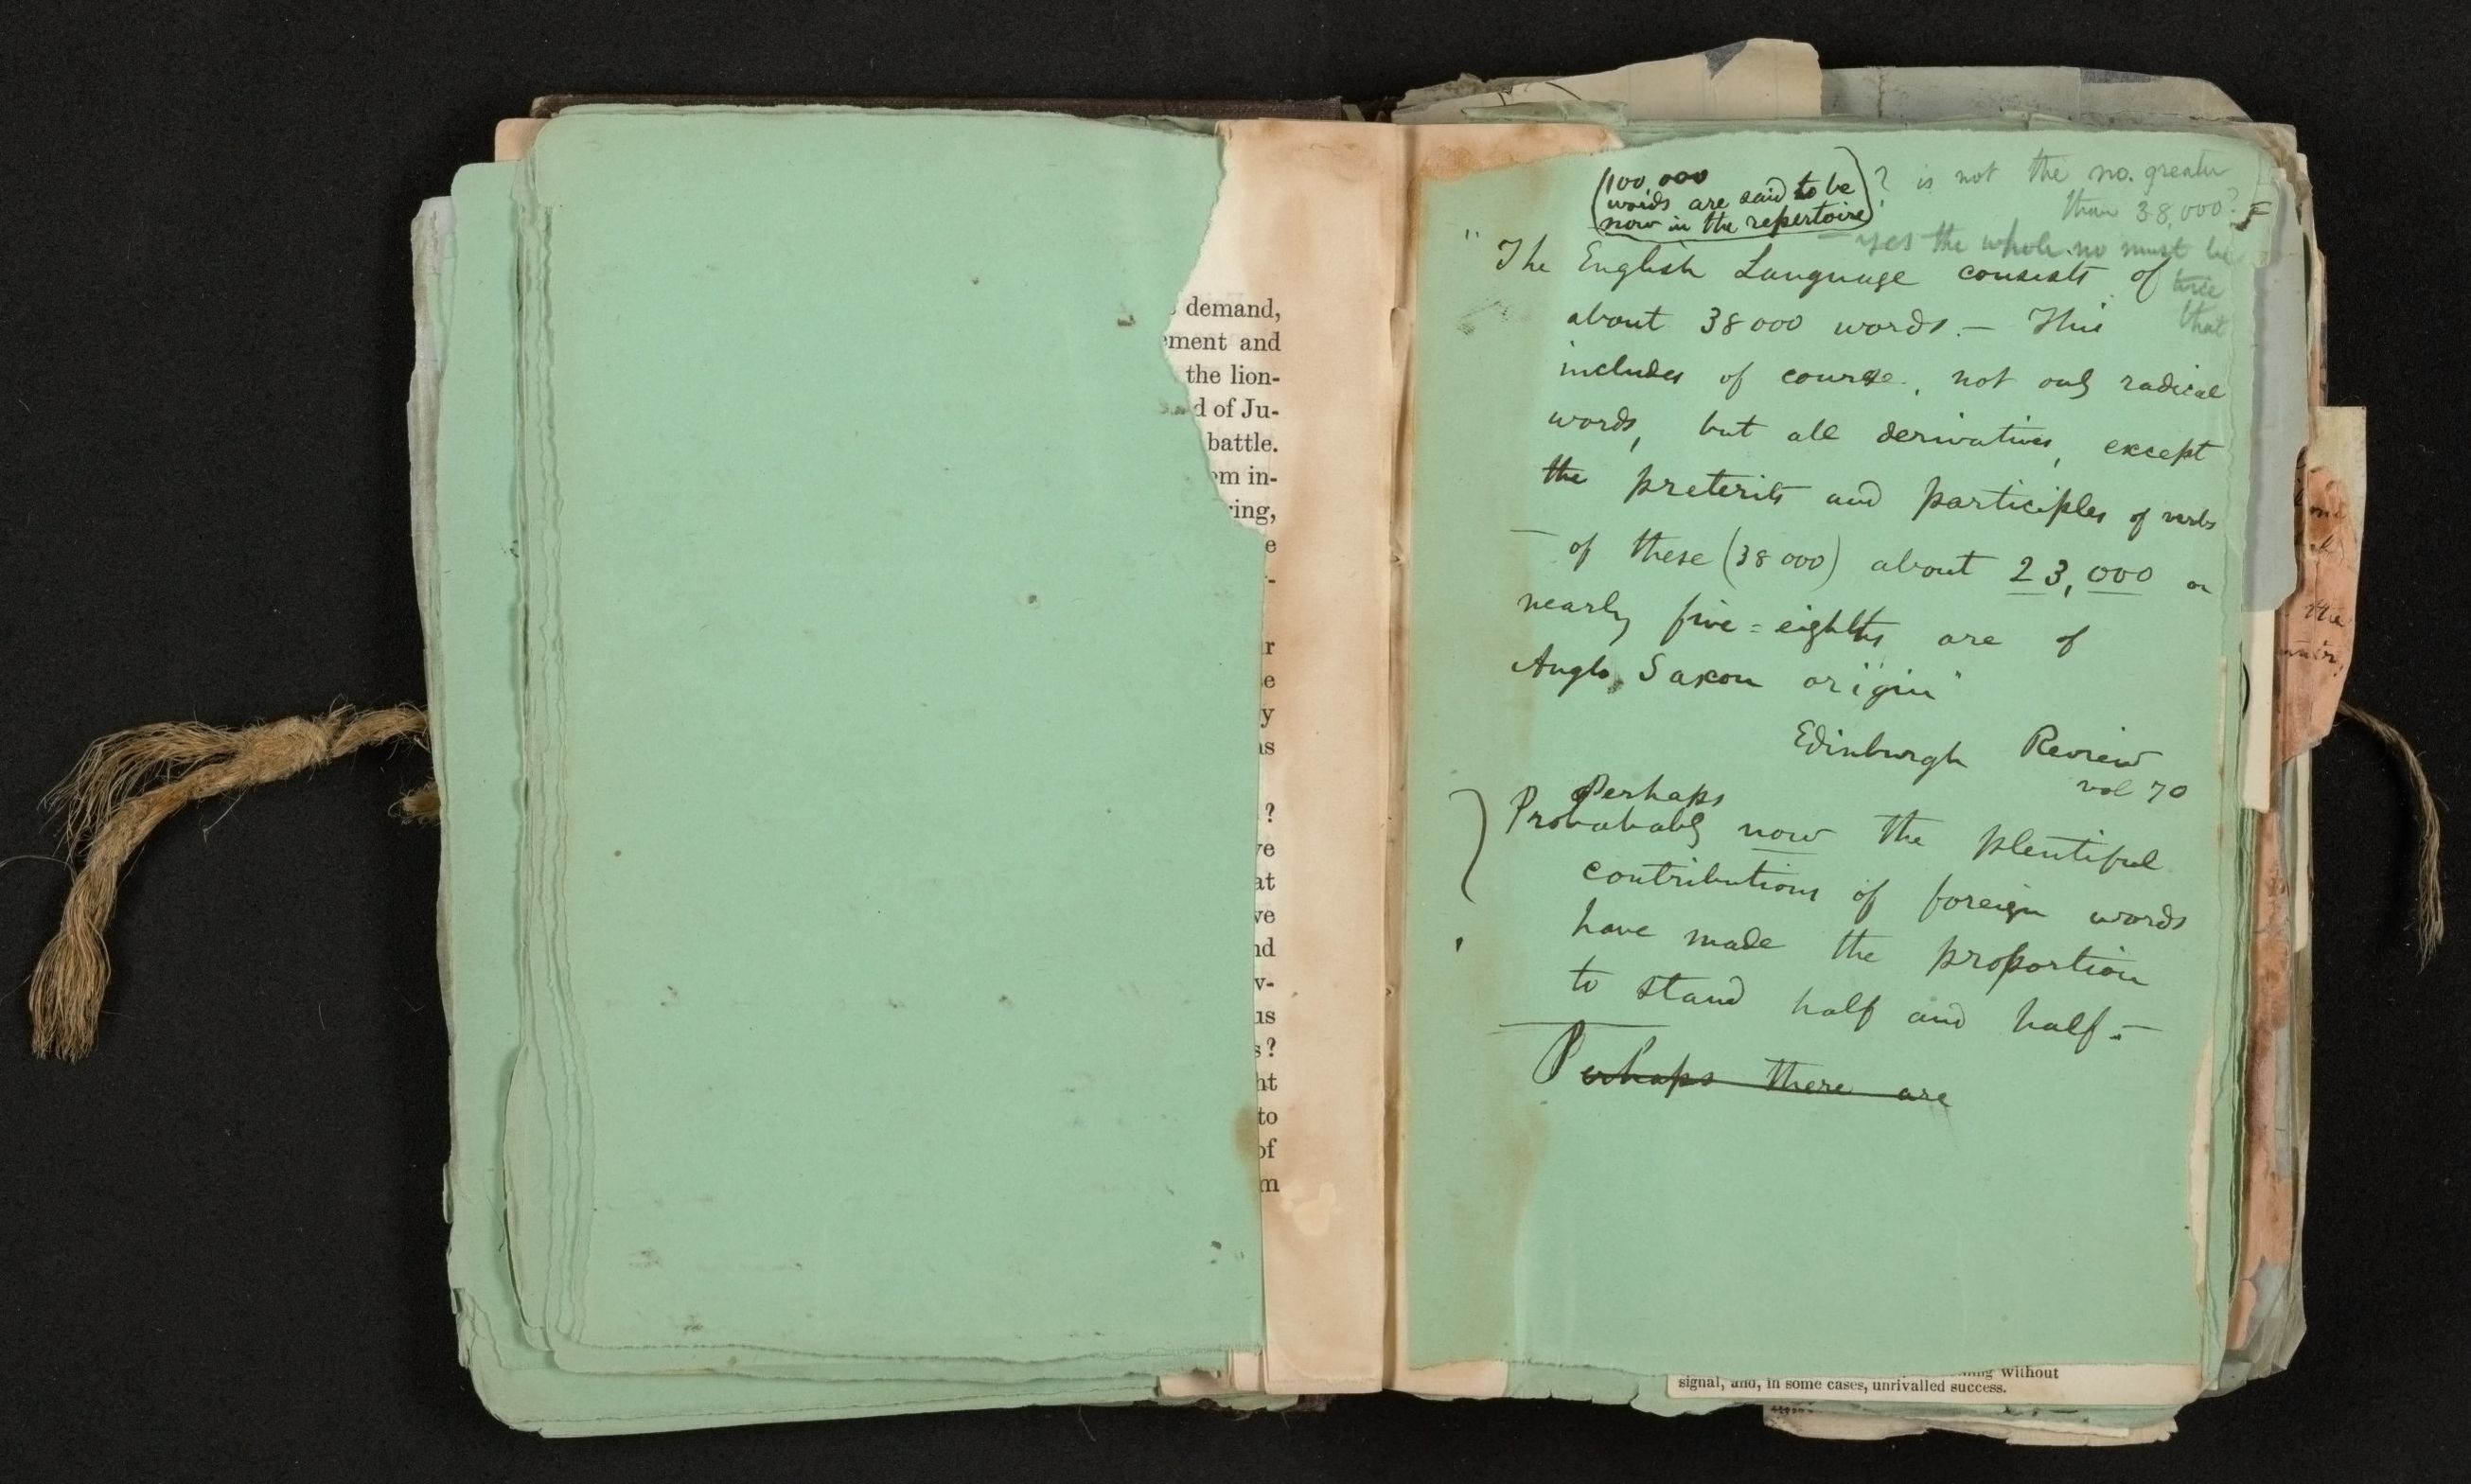 demand,
ement and
the lion-
d of Ju-
battle.
om in-
ring,
e
-
r
e
y
as
?
ve
at
ve
nd
v-
us
s?
ht
to
of
m
(100,000
words are said to be
now in the repertoire)
? is not the no. greater
than 38,000?
— yes the whole no must be
twice
that
" The English Language consists of
about 38000 words. — This
includes of course, not only radical
words, but all derivatives, except
the preterits and participles of verbs
— of these (38000) about 23,000 or
nearly five=eighths are of
Anglo Saxon origin"
Edinburgh Review
vol 70
Perhaps
Probabably now the plentiful
contributions of foreign words
have made the proportion
to stand half and half. —
Perhaps there are
without
signal, and, in some cases, unrivalled success.
the